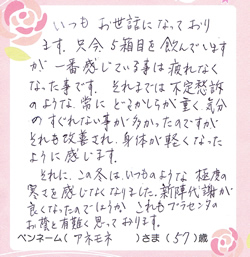 いつも お世話になっており
ます。只今 5箱目を飲んでいます
が 一番感じている事は疲れなく
なった事です。それまでは不定愁訴
のような、常に どこかしらが重く、気分
のすぐれない事が多かったのですが
それも改善され、身体が軽くなった
ように感じます。
それに、この冬は、いつものような 極度の
寒さを感じなくなりました。新陳代謝が
良くなったのでしょうか これもプラセンタの
お蔭と有難く思っております。
ペンネーム( アネモネ )さま (57)歳